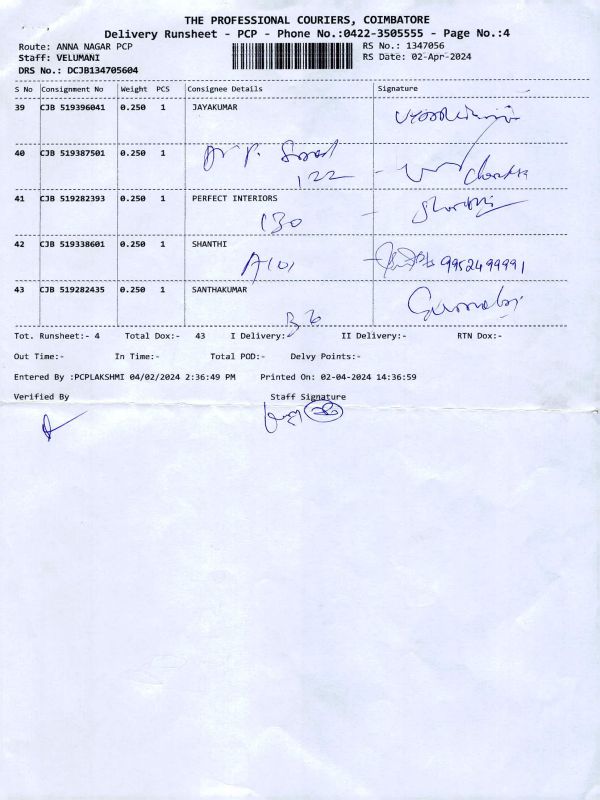 THE PROFESSIONAL COURIERS, COIMBATORE
Delivery Runsheet - PCP - Phone No.:0422-3505555 - Page No.:4
Route: ANNA NAGAR PCP RS No.: 1347056
Staff: VELUMANI RS Date: 02-Apr-2024
DRS No.: DCJB134705604
S No Consignment No Weight PCS Consignee Details Signature
39 CJB 519396041 0.250 1 JAYAKUMAR
40 CJB 519387501 0.250 1
122
41 CJB 519282393 0.250 1 PERFECT INTERIORS
130
42 CJB 519338601 0.250 1 SHANTHI
A101 9952499991
43 CJB 519282435 0.250 1 SANTHAKUMAR
Tot. Runsheet:- 4 Total Dox:- 43 I Delivery:- II Delivery:- RTN Dox:-
Out Time:- In Time:- Total POD:- Delvy Points:-
Entered By :PCPLAKSHMI 04/02/2024 2:36:49 PM Printed On: 02-04-2024 14:36:59
Verified By Staff Signature